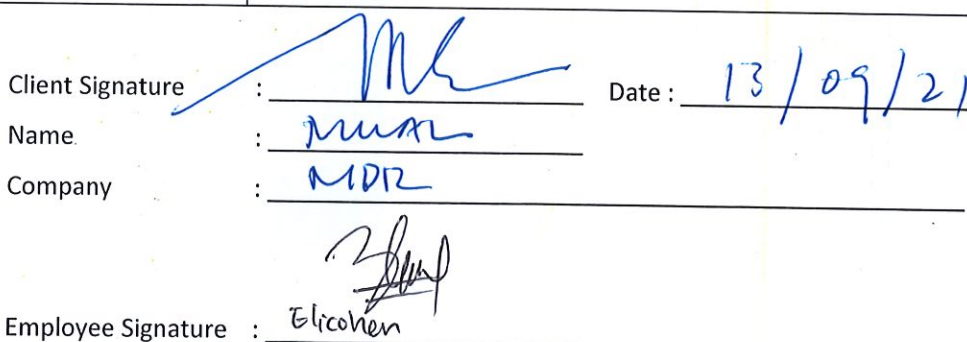 Client Signature : Date : 13/09/21
Name :
Company : MDR
Employee Signature : Elicohen